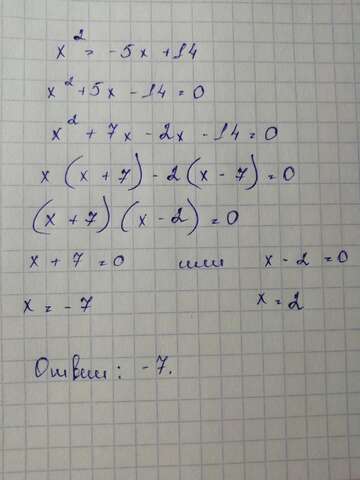 x² = -5x + 14
x² + 5x - 14 = 0
x² + 7x - 2x - 14 = 0
x (x + 7) - 2 (x - 7) = 0
(x + 7) (x - 2) = 0
x + 7 = 0 или x - 2 = 0
x = -7 x = 2
Ответ: -7.